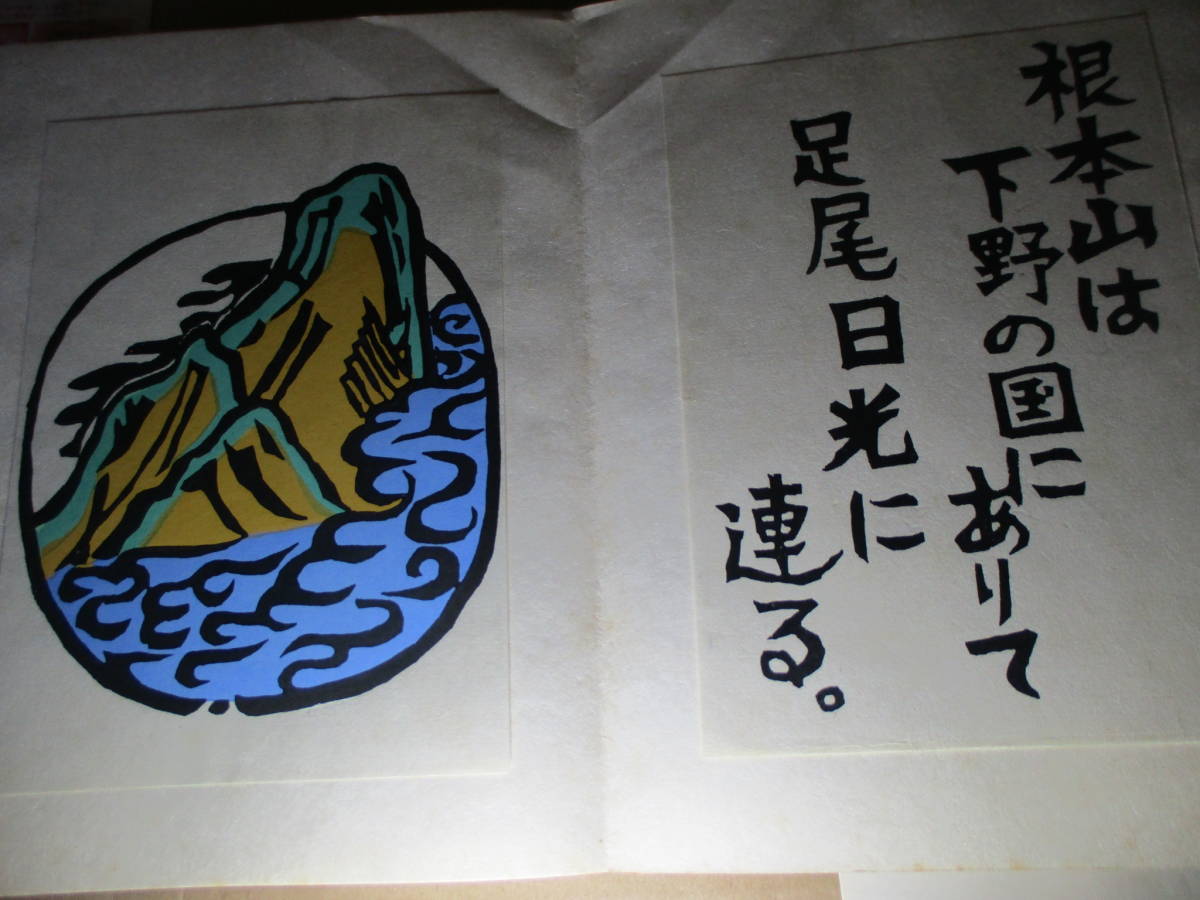 根本山は
下野の国にありて
足尾日光に
連る。